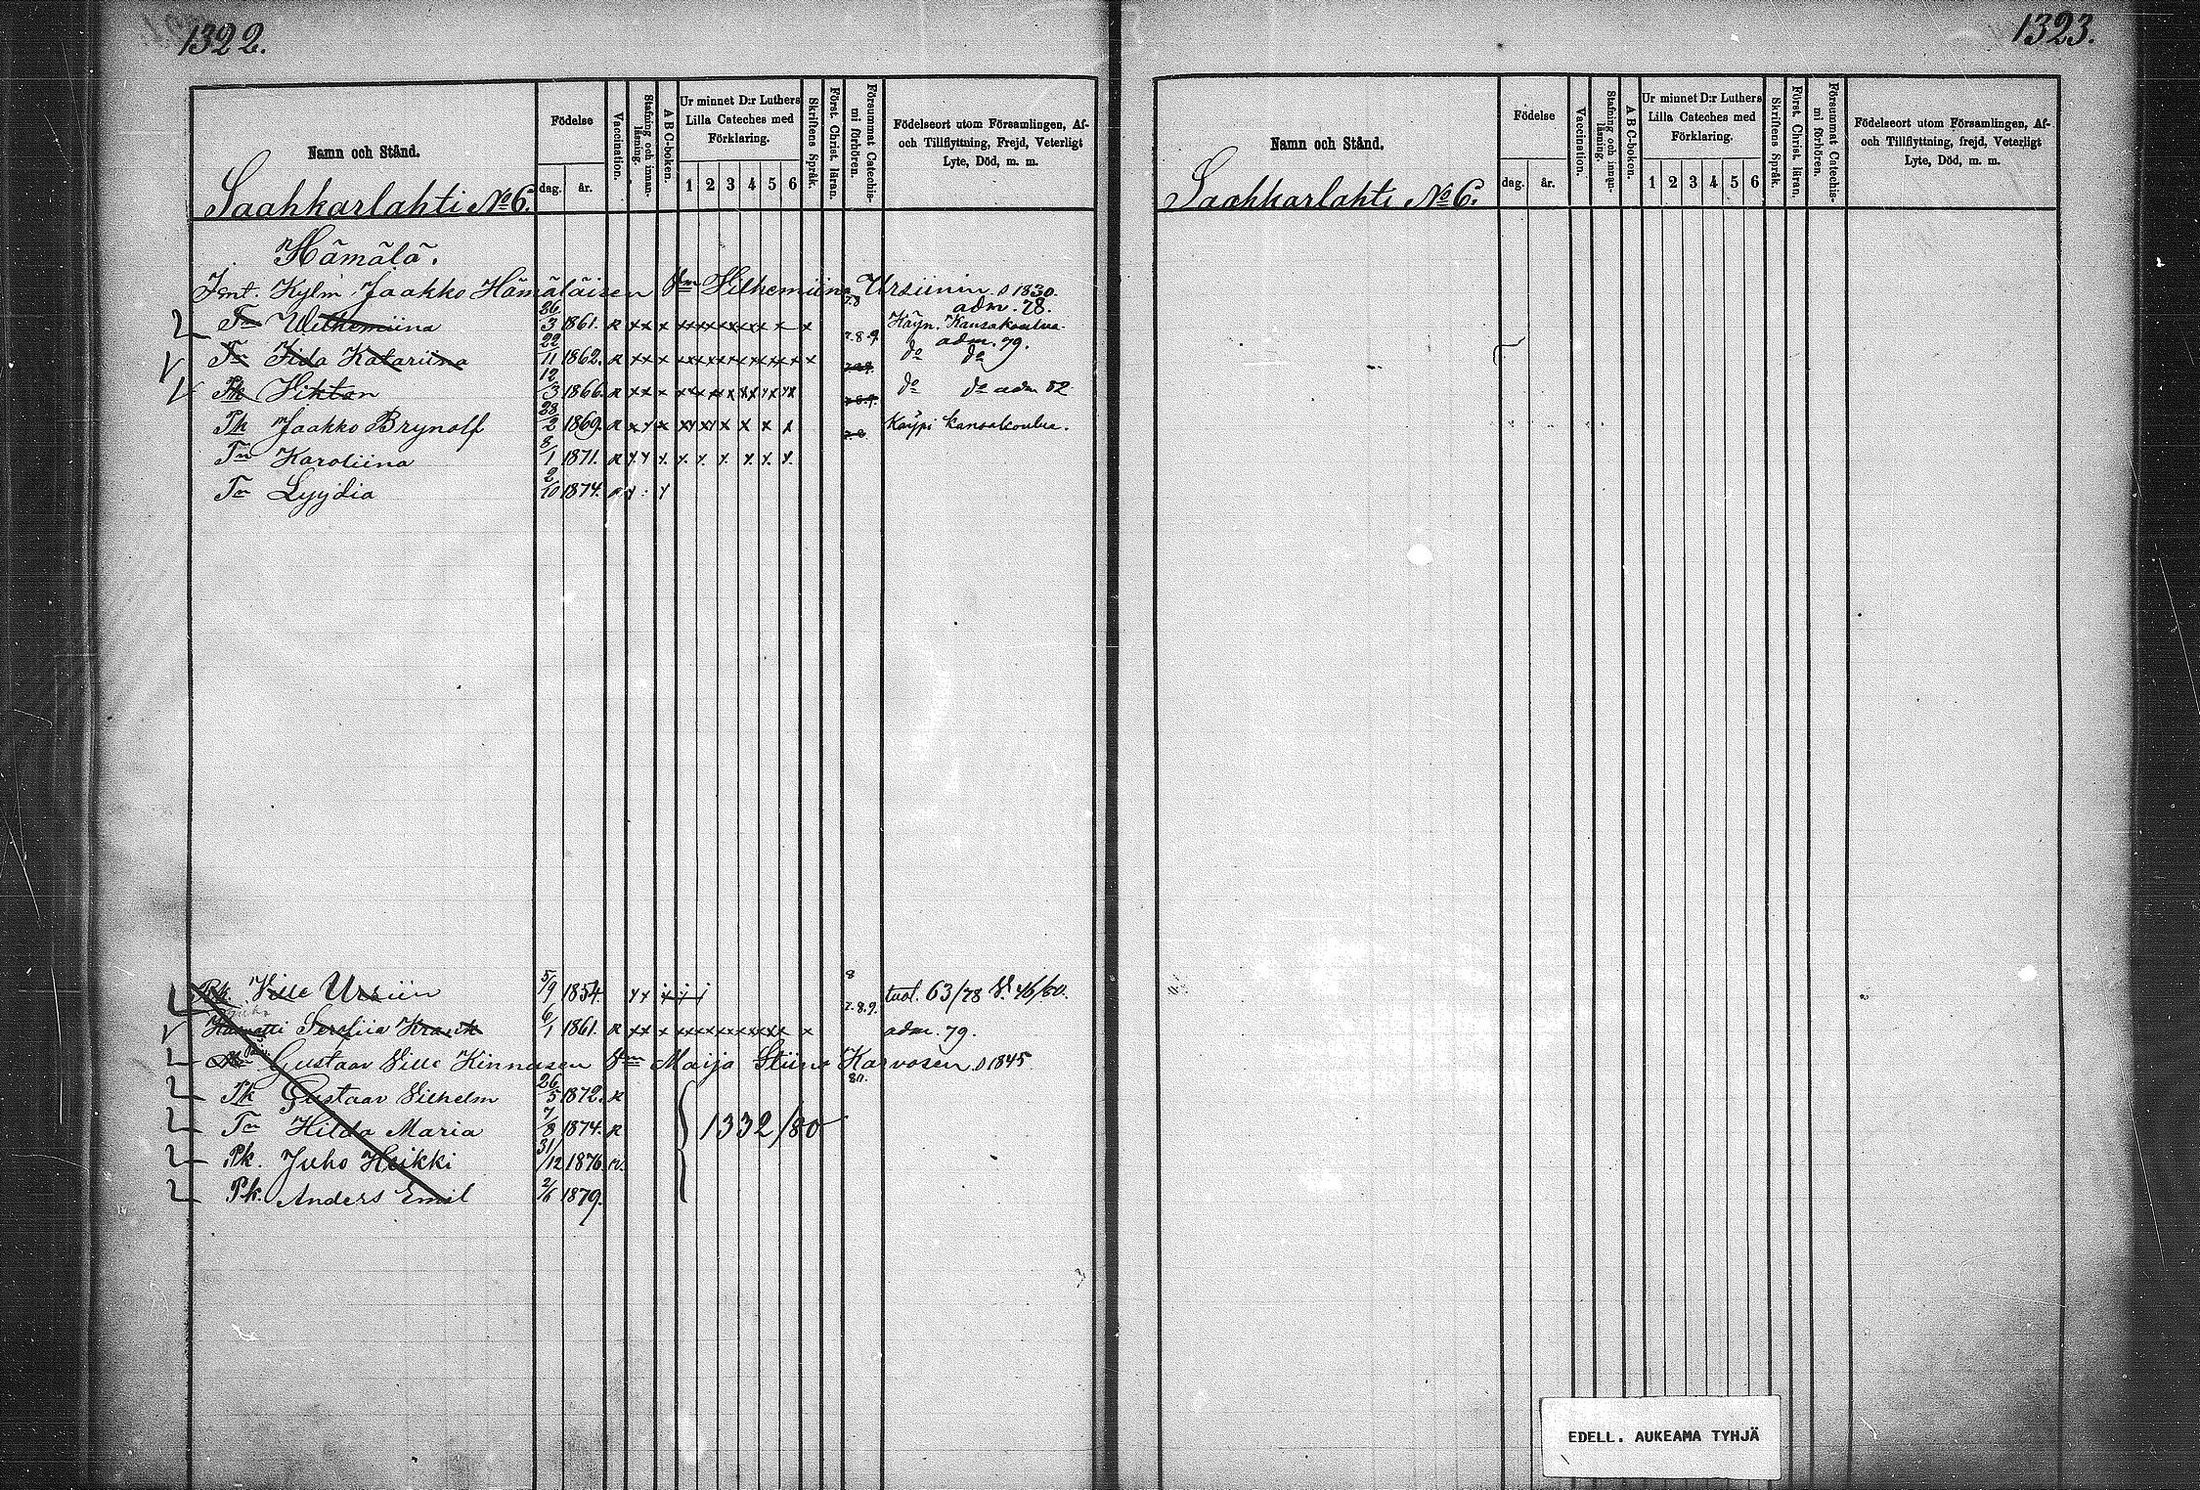 1322.
Namn och Stånd.
Födelse
dag. år.
Vaccination.
Stafning och innan-läsning.
A B C-boken.
Ur minnet D:r Luthers
Lilla Cateches med
Förklaring.
1 2 3 4 5 6
Skriftens Språk.
Först. Christ. läran.
Försummat Catechis-
mi förhören.
Födelseort utom Församlingen, Af-
och Tillflyttning, Frejd, Veterligt
Lyte, Död, m. m.
Saahkarlahti No 6.
Hämälä.
Jaakko Hämäläisen Vm Vilhemiina Ursiinin s 1830.
Tr Wilhemiina 26/3 1861. R xx x xxxxxxxxx x x x 7.8 adm. 78. Käyn. Kansakoulua.
Tr Iida Katariina 22/11 1862. R xx x 7.8 9. adm. 79. do do
Pk Viktor 12/3 1866. R xx x do do adm 82
Pk Jaakko Brynolf 28/2 1869. R x y x Käypi kansakoulua.
Tr Karoliina 8/1 1871. R y y x
Tr Lyydia 2/10 1874.
Ville Ursiin 5/9 1854. 8 tuol. 63/78 V. 46/60.
Serafiia Krasck 6/1 1861. R xx x 7.8.9. adm. 79.
Gustaav Ville Kinnusen Vm Maija Stiina Karvosen s 1845
80.
Pk Gustaav Vilhelm 26/5 1872. R
Tr Hilda Maria 7/8 1874. R 1332/80
Pk. Juho Heikki 31/12 1876
Pk. Anders Emil 2/6 1879.
1323.
Namn och Stånd.
Födelse
dag. år.
Vaccination.
Stafning och innan-läsning.
A B C-boken.
Ur minnet D:r Luthers
Lilla Cateches med
Förklaring.
1 2 3 4 5 6
Skriftens Språk.
Först. Christ. läran.
Försummat Catechis-
mi förhören.
Födelseort utom Församlingen, Af-
och Tillflyttning, frejd, Veterligt
Lyte, Död, m. m.
Saahkarlahti No 6.
EDELL. AUKEAMA TYHJÄ